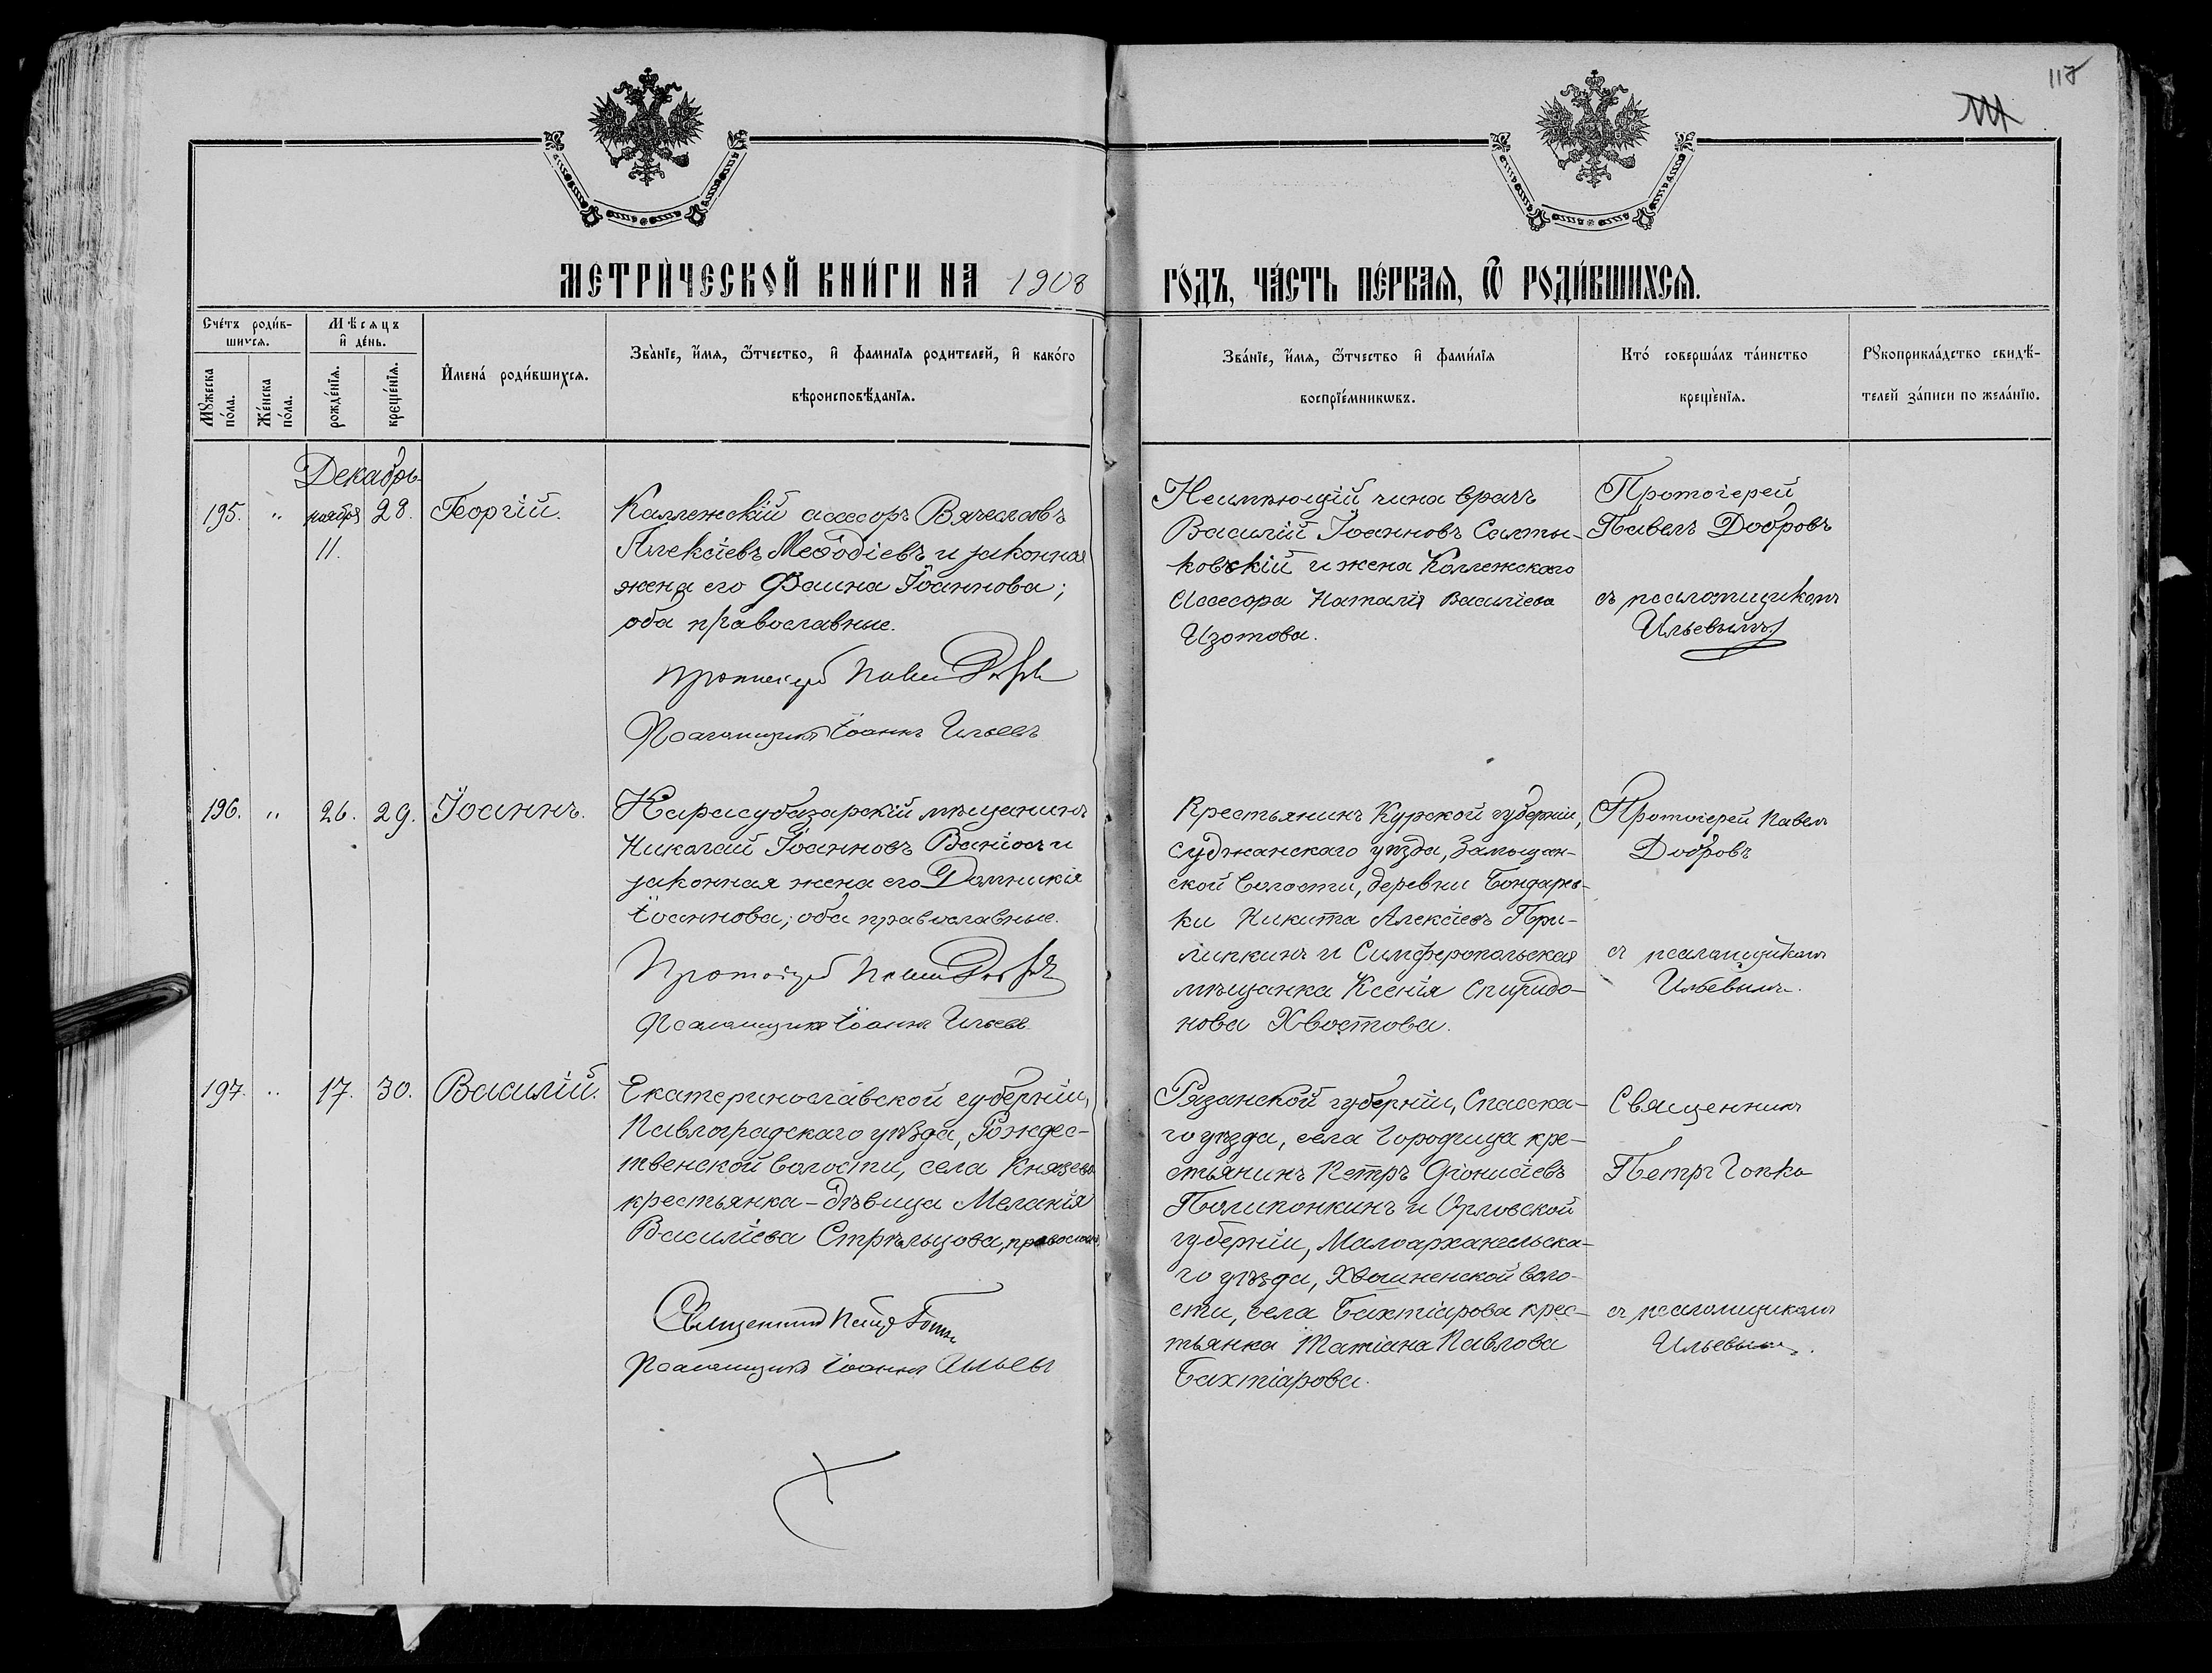 118
МЕТРИ́ЧЕСКОЙ КНИ́ГИ НА 1908 ГО́ДЪ, ЧА́СТЬ ПЕ́РВАЯ, Ѿ РОДИ́ВШИХСЯ.
Сче́тъ роди́в-
шихся.
Мѣсяцъ
и де́нь.
Имена́ роди́вшихся.
Зва́нїе, и́мя, ѻ҆́тчество, и фамилїя родителей, и како́го
вѣроисповѣ́данїя.
Мꙋжеска
по́ла.
Же́нска
по́ла.
рожде́нїя.
креще́нїя.
Зва́нїе, и́мя, ѻ҆́тчество и фами́лїя
воспрїе́мникѡвъ.
Кто́ соверша́лъ та́инство
креще́нїя.
Рꙋкоприкла́дство свидѣ́-
телей за́писи по жела́нїю.
Декабрь
195. " ноября 28. Георгій.
11.
Каллежскій ассесоръ Вячеславъ
Алексіевъ Меѳодіевъ и законная
жена его Фаина Іоаннова;
оба православные.
Протоіерей Павелъ Добровъ
Псаломщикъ Іоаннъ Ильевъ
Неимѣющій чина врачъ
Василій Іоанновъ Салты-
ковскій и жена Коллежскаго
Ассесора Наталія Василіева
Изотова.
Протоіерей
Павелъ Добровъ
съ псаломщикомъ
Ильевымъ
196. " 26. 29. Іоаннъ.
Карасубазарскій мѣщанинъ
Николай Іоанновъ и
законная жена его Домникія
Іоаннова; оба православные.
Протоіерей Павелъ Добровъ
Псаломщикъ Іоаннъ Ильевъ
Крестьянинъ Курской губерніи,
Суджанскаго уѣзда, Замощан-
ской волости, деревни Бондарев-
ки Никита Алексіевъ При-
липкинъ и Симферопольская
мѣщанка Ксенія Спиридо-
нова Хвостова.
Протоіерей Павелъ
Добровъ
съ псаломщикомъ
Ильевымъ.
197. " 17. 30. Василій.
Екатеринославской губерніи,
Павлоградскаго уѣзда, Рождес-
твенской волости, села Князево
крестьянка-дѣвица Меланія
Василіева Стрѣльцова, православн.
Священникъ Петръ Гопко
Псаломщикъ Іоаннъ Ильевъ
Рязанской губерніи, Спасска-
го уѣзда, села Городища кре-
стьянинъ Петръ Діонисіевъ
Полипонкинъ и Орловской
губерніи, Малоархангельска-
го уѣзда, волo-
сти, села Бахтіарова крес-
тьянка Татіана Павлова
Бахтіарова.
Священникъ
Петръ Гопко
съ псаломщикомъ
Ильевымъ.